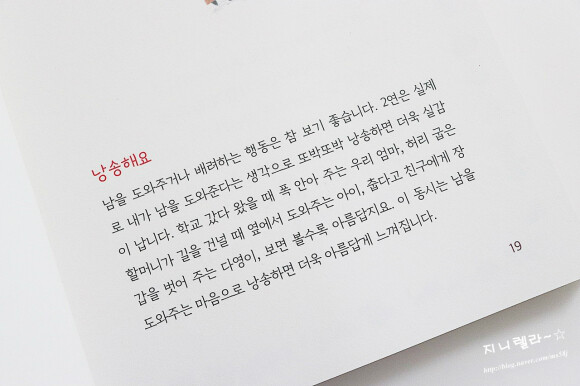 낭송해요
남을 도와주거나 배려하는 행동은 참 보기 좋습니다. 2연은 실제
로 내가 남을 도와준다는 생각으로 또박또박 낭송하면 더욱 실감
이 납니다. 학교 갔다 왔을 때 폭 안아 주는 우리 엄마, 허리 굽은
할머니가 길을 건널 때 옆에서 도와주는 아이, 춥다고 친구에게 장
갑을 벗어 주는 다영이, 보면 볼수록 아름답지요. 이 동시는 남을
도와주는 마음으로 낭송하면 더욱 아름답게 느껴집니다.
19
지니렐라~☆